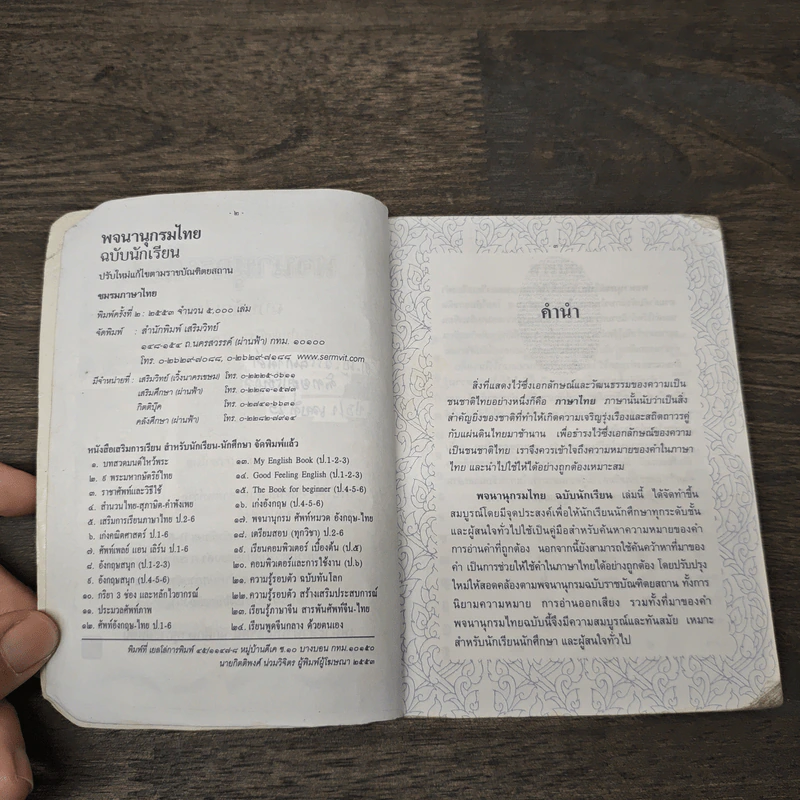 - ๒ -
พจนานุกรมไทย
ฉบับนักเรียน
ปรับใหม่แก้ไขตามราชบัณฑิตยสถาน
ชมรมภาษาไทย
พิมพ์ครั้งที่ ๒ : ๒๕๕๓ จำนวน ๕,๐๐๐ เล่ม
จัดพิมพ์ : สำนักพิมพ์ เสริมวิทย์
๑๔๘-๑๕๔ ถ.นครสวรรค์ (ผ่านฟ้า) กทม. ๑๐๑๐๐
โทร. ๐-๒๖๒๙-๗๐๘๘, ๐-๒๖๒๙-๗๑๘๘ www.sermvit.com
มีจำหน่ายที่ : เสริมวิทย์ (เวิ้งนาครเขษม) โทร. ๐-๒๒๒๕-๐๖๑๑
เสริมศึกษา (ผ่านฟ้า) โทร. ๐-๒๒๘๑-๑๕๗๓
กิตติบุ๊ค โทร. ๐-๒๗๔๑-๖๖๓๑
คลังศึกษา (ผ่านฟ้า) โทร. ๐-๒๒๘๒-๗๙๑๔
หนังสือเสริมการเรียน สำหรับนักเรียน-นักศึกษา จัดพิมพ์แล้ว
๑. บทสวดมนต์ไหว้พระ
๒. ๙ พระมหากษัตริย์ไทย
๓. ราชาศัพท์และวิธีใช้
๔. สำนวนไทย-สุภาษิต-คำพังเพย
๕. เสริมการเรียนภาษาไทย ป.2-6
๖. เก่งคณิตศาสตร์ ป.1-6
๗. ศัพท์เพลย์ แอน เลิร์น ป.1-6
๘. อังกฤษสนุก (ป.1-2-3)
๙. อังกฤษสนุก (ป.4-5-6)
๑๐. กริยา 3 ช่อง และหลักไวยากรณ์
๑๑. ประมวลศัพท์ภาพ
๑๒. ศัพท์อังกฤษ-ไทย ป.1-6
๑๓. My English Book (ป.1-2-3)
๑๔. Good Feeling English (ป.1-2-3)
๑๕. The Book for beginner (ป.4-5-6)
๑๖. เก่งอังกฤษ (ป.4-5-6)
๑๗. พจนานุกรม ศัพท์หมวด อังกฤษ-ไทย
๑๘. เตรียมสอบ (ทุกวิชา) ป.2-6
๑๙. เรียนคอมพิวเตอร์ เบื้องต้น (ป.๕)
๒๐. คอมพิวเตอร์และการใช้งาน (ป.๖)
๒๑. ความรู้รอบตัว ฉบับทันโลก
๒๒. ความรู้รอบตัว สร้างเสริมประสบการณ์
๒๓. เรียนรู้ภาษาจีน สารพันศัพท์จีน-ไทย
๒๔. เรียนพูดจีนกลาง ด้วยตนเอง
พิมพ์ที่ เยลโล่การพิมพ์ ๔๕/๑๑๔๗-๘ หมู่บ้านดีเค ซ.๑๐ บางบอน กทม.๑๐๑๕๐
นายกิตติพงศ์ น่วมวิจิตร ผู้พิมพ์ผู้โฆษณา ๒๕๕๓
คำนำ
สิ่งที่แสดงไว้ซึ่งเอกลักษณ์และวัฒนธรรมของความเป็น
ชนชาติไทยอย่างหนึ่งก็คือ ภาษาไทย ภาษานั้นนับว่าเป็นสิ่ง
สำคัญยิ่งของชาติที่ทำให้เกิดความเจริญรุ่งเรืองและสถิตถาวรคู่
กับแผ่นดินไทยมาช้านาน เพื่อธำรงไว้ซึ่งเอกลักษณ์ของความ
เป็นชนชาติไทย เราจึงควรเข้าใจถึงความหมายของคำในภาษา
ไทย และนำไปใช้ให้ได้อย่างถูกต้องเหมาะสม
พจนานุกรมไทย ฉบับนักเรียน เล่มนี้ ได้จัดทำขึ้น
สมบูรณ์โดยมีจุดประสงค์เพื่อให้นักเรียนนักศึกษาทุกระดับชั้น
และผู้สนใจทั่วไปใช้เป็นคู่มือสำหรับค้นหาความหมายของคำ
การอ่านคำที่ถูกต้อง นอกจากนี้ยังสามารถใช้ค้นคว้าหาที่มาของ
คำ เป็นการช่วยให้ใช้คำในภาษาไทยได้อย่างถูกต้อง โดยปรับปรุง
ใหม่ให้สอดคล้องตามพจนานุกรมฉบับราชบัณฑิตยสถาน ทั้งการ
นิยามความหมาย การอ่านออกเสียง รวมทั้งที่มาของคำ
พจนานุกรมไทยฉบับนี้จึงมีความสมบูรณ์และทันสมัย เหมาะ
สำหรับนักเรียนนักศึกษา และผู้สนใจทั่วไป